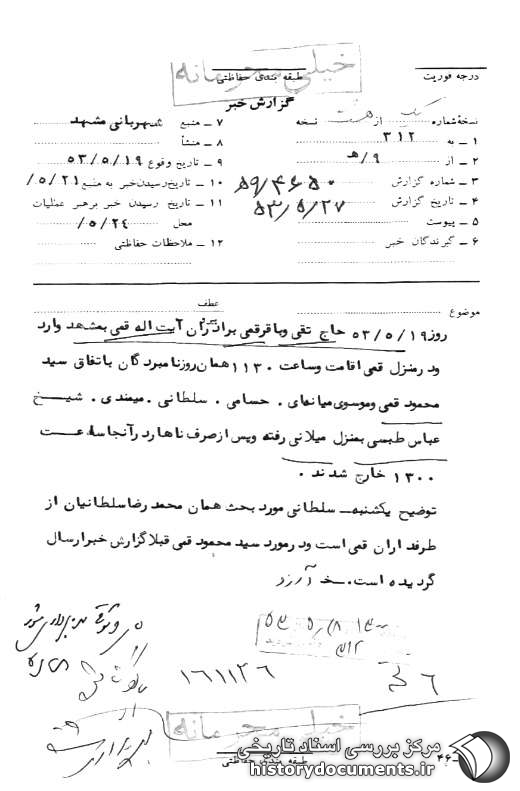 خیلی محرمانه
درجه فوریت
طبقه بندی حفاظتی
گزارش خبر
نسخهٔ شماره یک از هشت نسخه
۱ ـ به ۳۱۲
۲ ـ از ۹/هـ
۳ ـ شماره گزارش
۴ ـ تاریخ گزارش ۵۳/۵/۲۷
۵ ـ پیوست
۶ ـ گیرندگان خبر
۷ ـ منبع شهربانی مشهد
۸ ـ منشأ
۹ ـ تاریخ وقوع ۵۳/۵/۱۹
۱۰ ـ تاریخ رسیدن خبر به منبع ۵/۲۱/
۱۱ ـ تاریخ رسیدن خبر برهبر عملیات
محل ۵/۲۴/
۱۲ ـ ملاحظات حفاظتی
موضوع
عطف
روز ۵۳/۵/۱۹ حاج تقی و باقر قمی برادران آیت اله قمی بمشهد وارد
و در منزل قمی اقامت و ساعت ۱۱۳۰ همان روز نامبردگان باتفاق سید
محمود قمی و موسوی میانه‌ای . حسامی . سلطانی . میمندی . شیخ
عباس طبسی بمنزل میلانی رفته و پس از صرف ناهار در آنجا ساعت
۱۳۰۰ خارج شدند .
توضیح یکشنبه ـ سلطانی مورد بحث همان محمد رضا سلطانیان از
طرفداران قمی است و در مورد سید محمود قمی قبلا گزارش خبر ارسال
گردیده است.
۱۶۱۱۲۶
خیلی محرمانه
طبقه بندی حفاظتی
مرکز بررسی اسناد تاریخی
historydocuments.ir